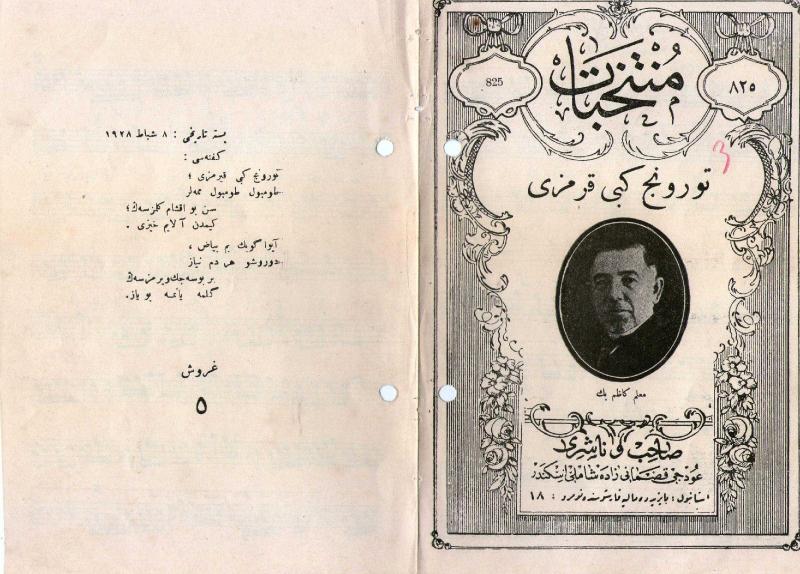 بسته تاریخی : ٨ شباط ١٩٢٨
كفته‌سی :
تورونج كبی قیرمزی ؛
طومبول طومبول ممه‌لر
سن بو اقشام كلزسه‌ڭ؛
كیمدن آلایم خیزی .
آیوا گوبك یم بیاض ،
دوروشو هر دم نیاز
بر بوسه‌جك ویرمزسه‌ڭ
گلمه یانمه بو یاز.
غروش
٥
825
منتخبات
٨٢٥
3
تورونج كبی قرمزی
معلم كاظم بك
صاحب و ناشری
عودجی قضمانی زاده شاملی اسكندر
استانبول : بایزیدده مالیه قارشوسنده نومرو : ١٨